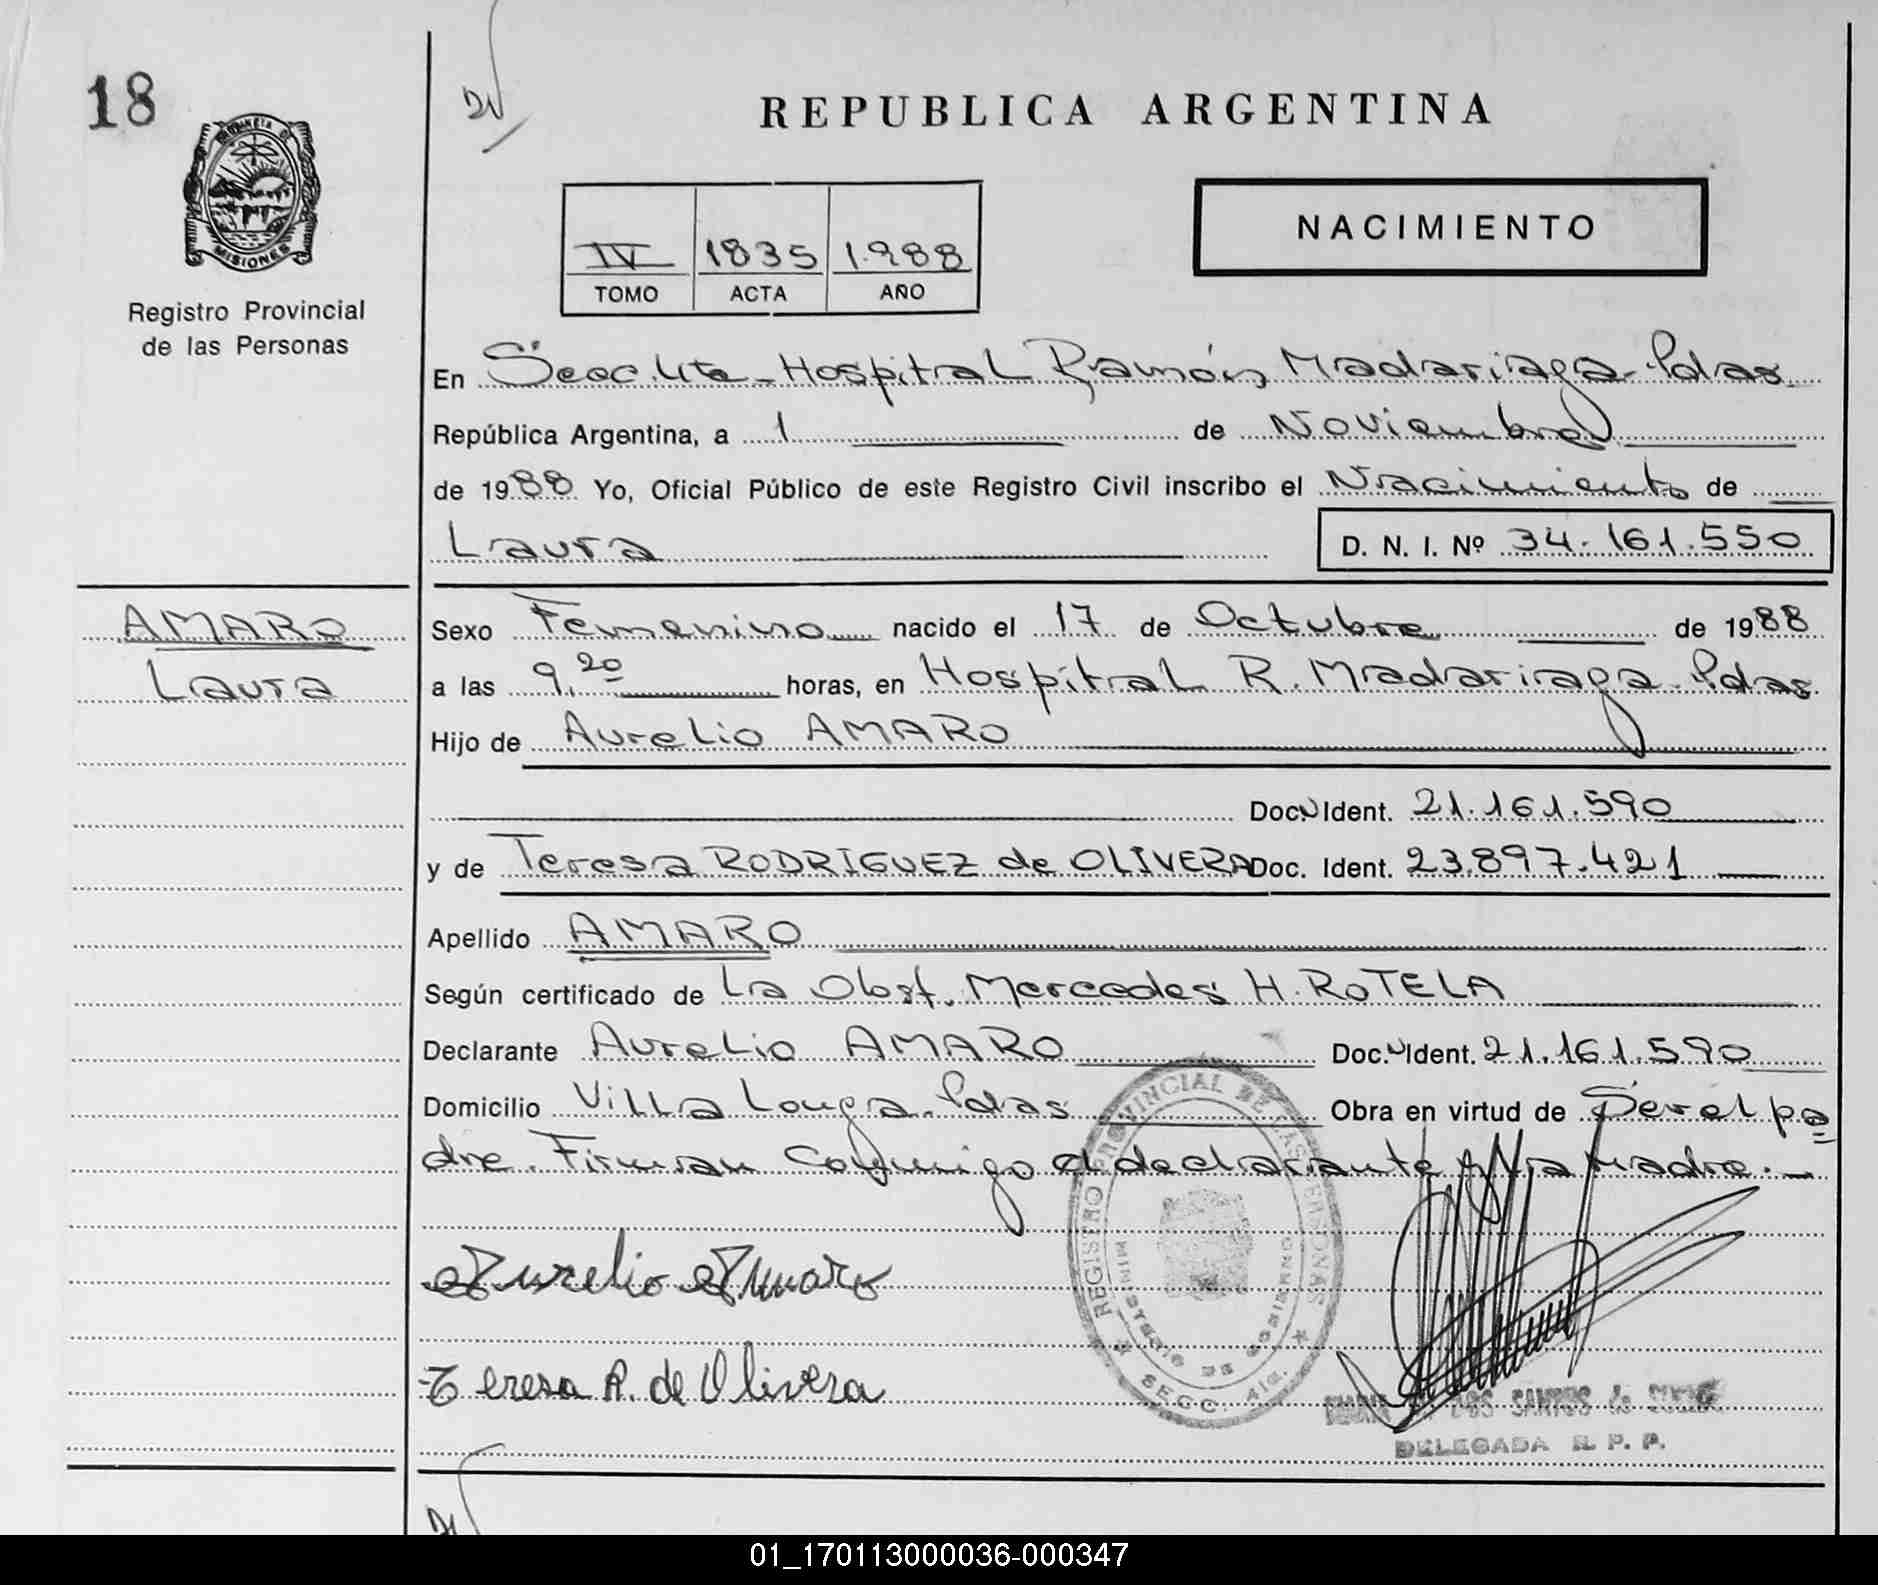 18
REPUBLICA ARGENTINA
PROVINCIA DE
MISIONES
Registro Provincial
de las Personas
NACIMIENTO
IV 1835 1.988
TOMO ACTA AÑO
En Secc. 4ta - Hospital Ramón Madariaga - Pdas
República Argentina, a 1 de Noviembre
de 1988 Yo, Oficial Público de este Registro Civil inscribo el Nacimiento de
Laura
D. N. I. Nº 34.161.550
AMARO
Laura
Sexo Femenino nacido el 17 de Octubre de 1988
a las 9,20 horas, en Hospital R. Madariaga - Pdas
Hijo de Aurelio AMARO
Doc. Ident. 21.161.590
y de Teresa RODRIGUEZ de OLIVERA Doc. Ident. 23.897.421
Apellido AMARO
Según certificado de La Obst. Mercedes H. ROTELA
Declarante Aurelio AMARO Doc. Ident. 21.161.590
Domicilio Villa Longa - Pdas Obra en virtud de Ser el pa
dre. Firman Conmigo el declarante y la Madre. -
Aurelio Amaro
Teresa R. de Olivera
REGISTRO PROVINCIAL DE LAS PERSONAS
MINISTERIO DE GOBIERNO
SECC. 4ta.
DOS SANTOS de
DELEGADA R. P. P.
01_170113000036-000347